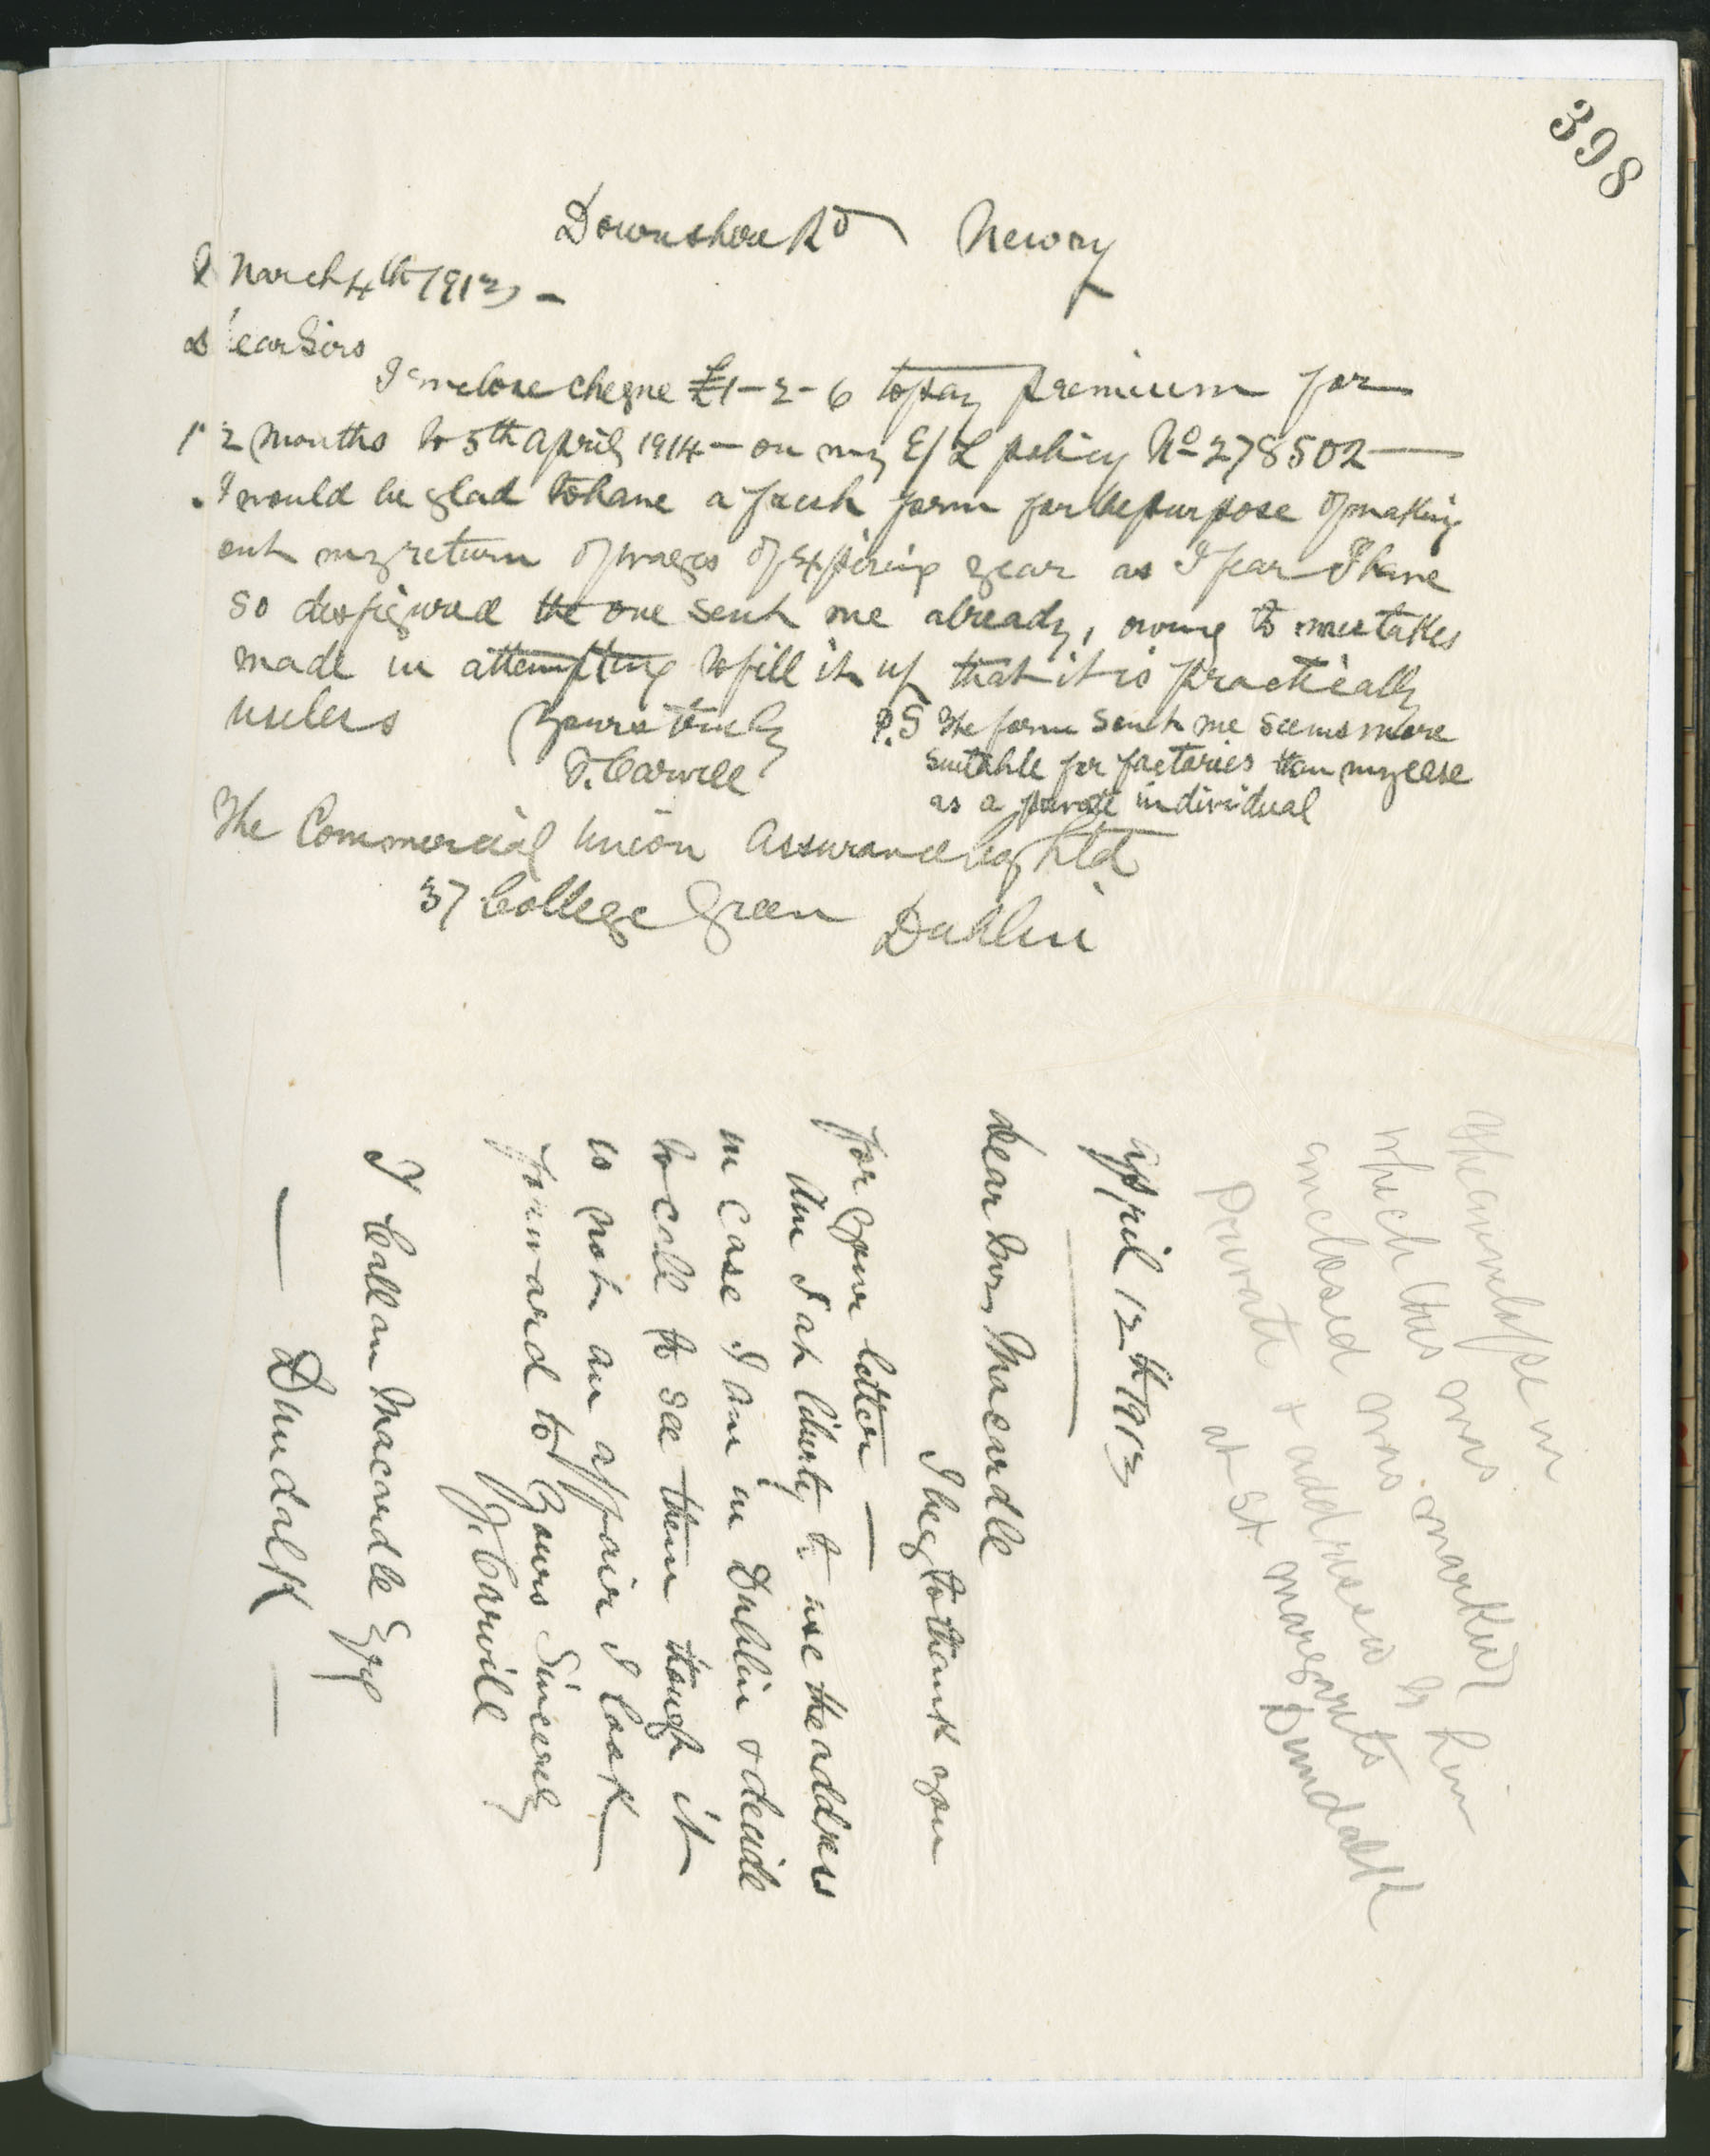 398
Downshire Rd Newry
March 4th 1913 -
Dear Sirs
I enclose cheque £1-2-6 to pay premium for
12 months to 5th April 1914 - on my E/L policy No 278502 -
I would be glad to have a fresh form for the purpose of making
out my return of wages of expiring year as I fear I have
so disfigured the one sent me already, owing to mistakes
made in attempting to fill it up that it is practically
useless
Yours truly
J. Carvill
P.S The form sent me seems more
suitable for factories than my case
as a private individual
The Commercial Union Assurance Coy Ltd
37 College Green Dublin
The envelope in
which this was
enclosed was marked
Private & addressed to him
at St Margarets
Dundalk
April 12th 1913
Dear Mr Macardle
I beg to thank you
for your letter -
Am I at liberty to use the address
in case I am in Dublin & decide
to call to see them though it
is not an affair I look
forward to Yours Sincerely
J. Carvill
T Callan Macardle Esq
Dundalk